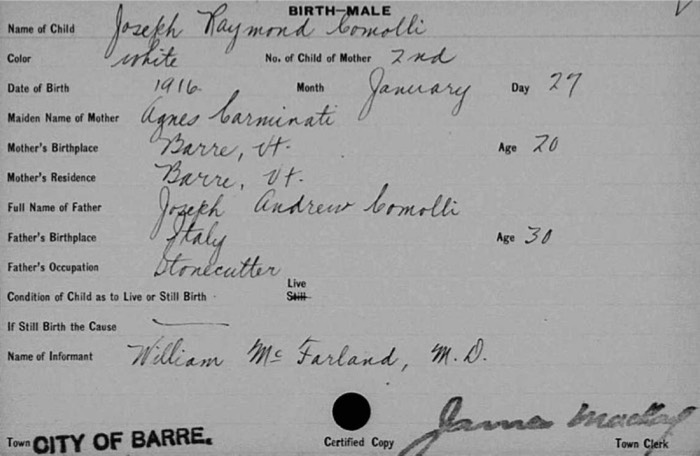 BIRTH—MALE
Name of Child Joseph Raymond Comolli
Color white No. of Child of Mother 2nd
Date of Birth 1916. Month January Day 27
Maiden Name of Mother Agnes Carminati
Mother's Birthplace Barre, Vt. Age 20
Mother's Residence Barre, Vt.
Full Name of Father Joseph Andrew Comolli
Father's Birthplace Italy Age 30
Father's Occupation Stonecutter
Live
Condition of Child as to Live or Still Birth Still
If Still Birth the Cause
Name of Informant William McFarland, M.D.
James Mackay
Town CITY OF BARRE. Certified Copy Town Clerk